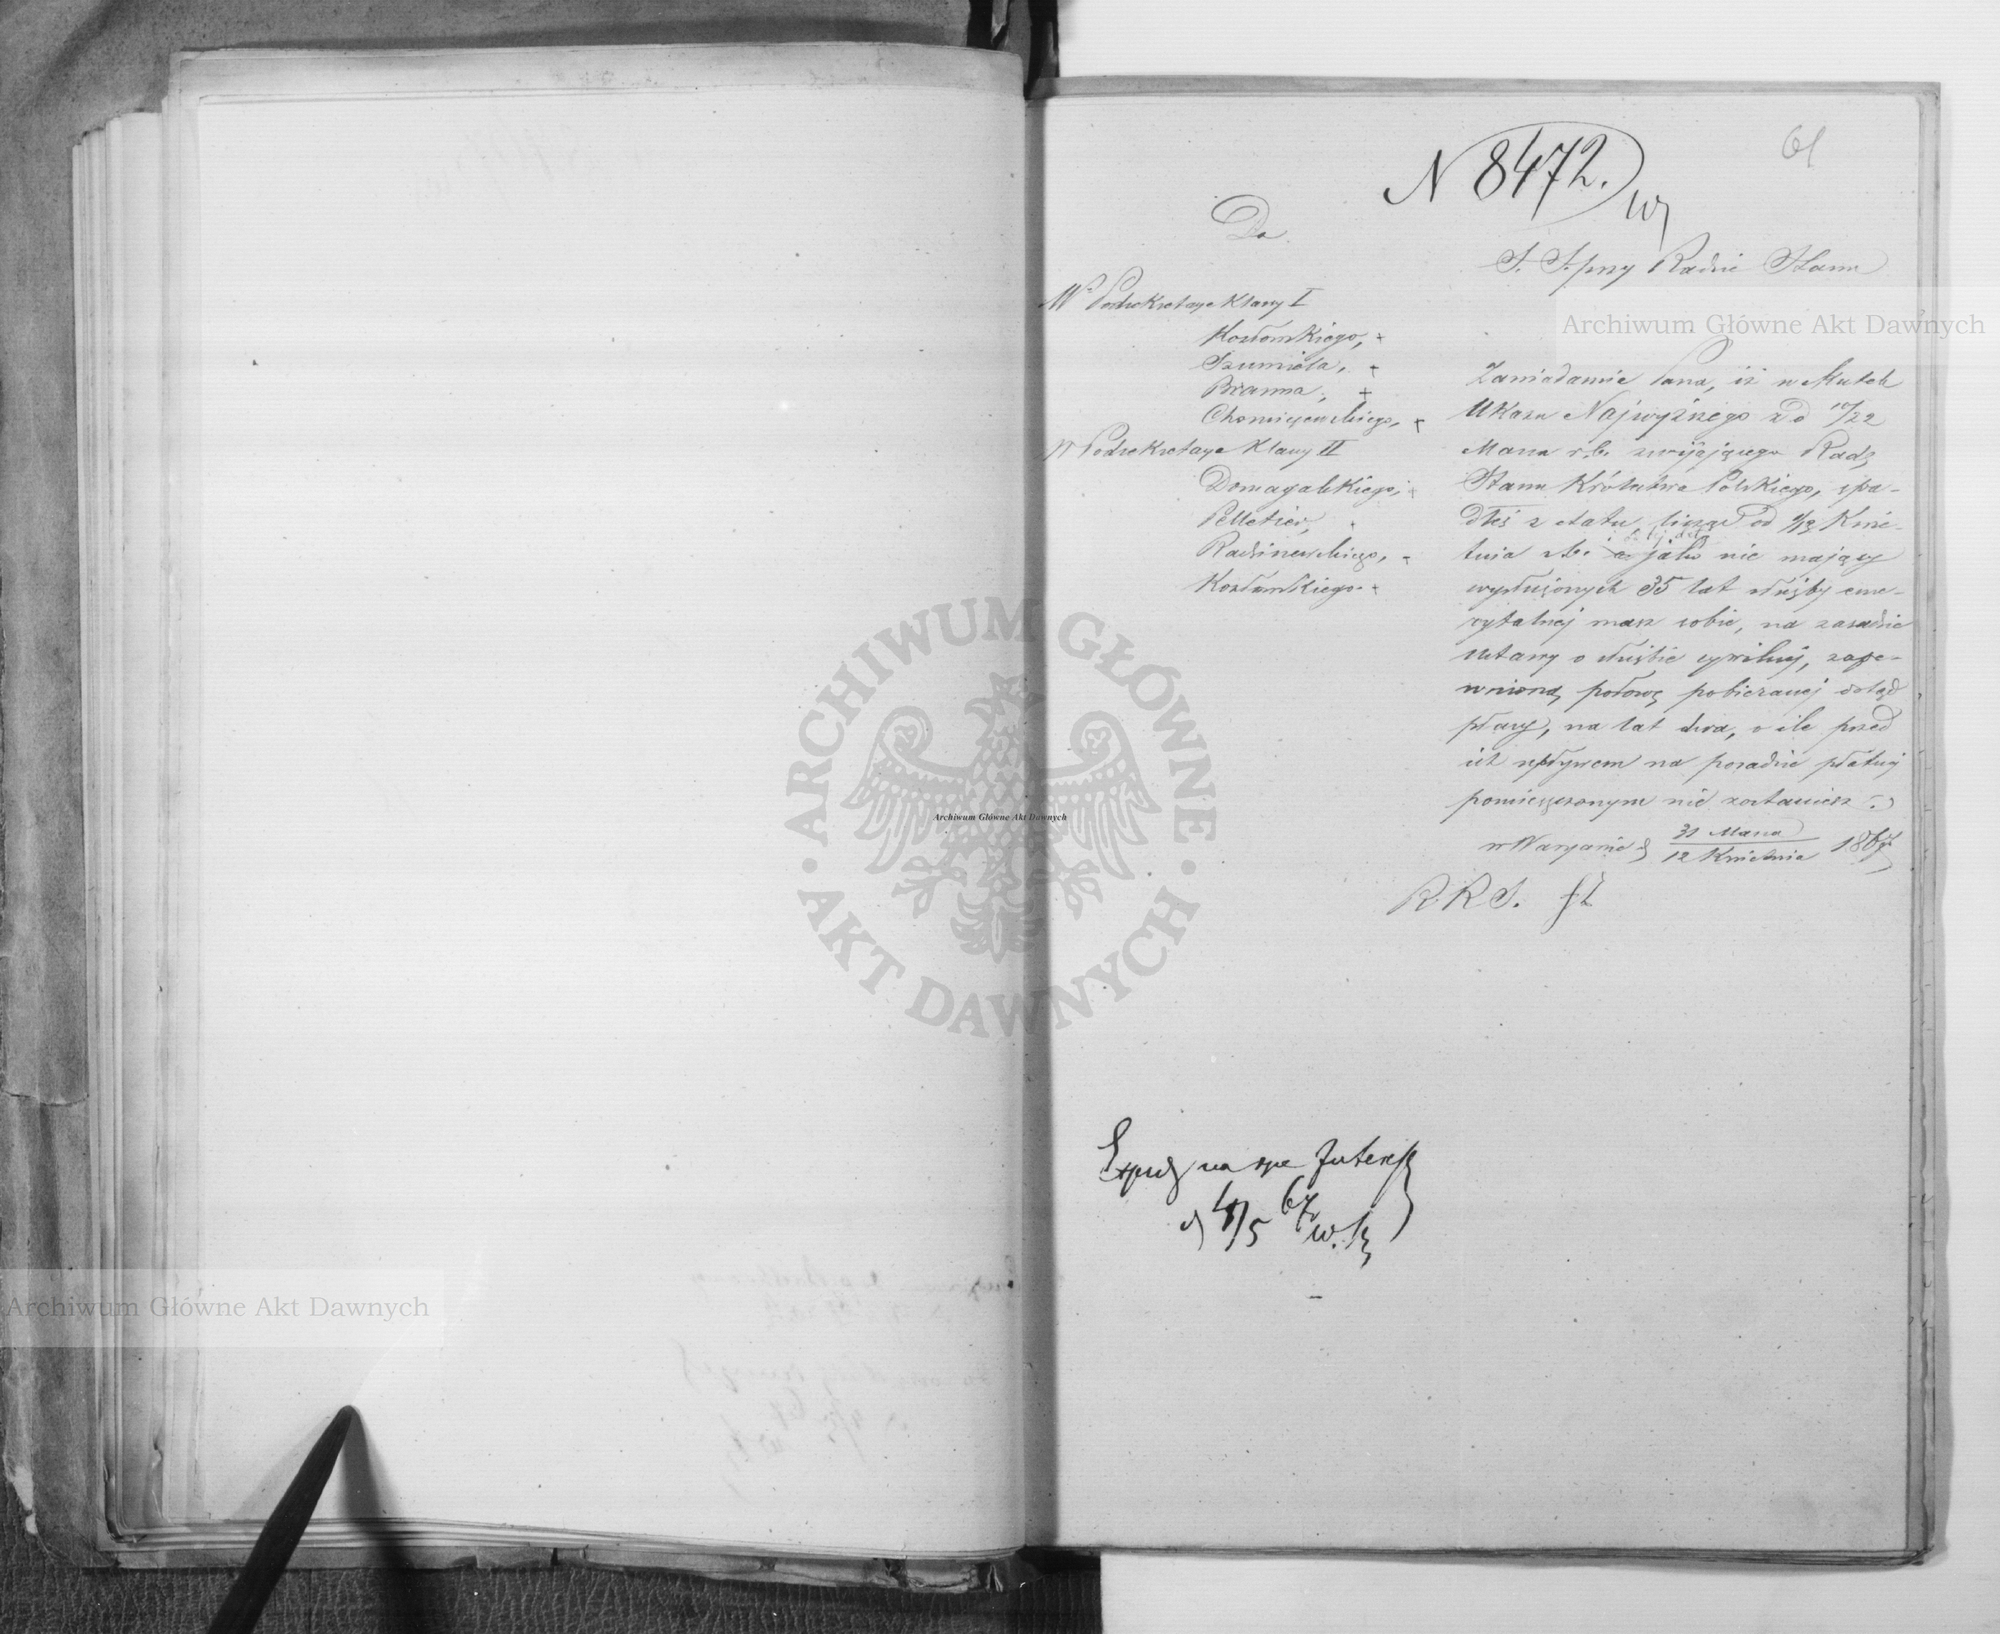 61
N 8472.
Do
S. S. przy Radzie Stanu
W. Podsekretarza Klassy I
Kozłowskiego, +
Szumiela, +
Brauna, +
Chomiczewskiego, +
W Podsekretarza Klassy II
Domagalskiego, +
Pelletier,
Radzinowskiego,
Kozłowskiego +
Zawiadamia Pana, iż w skutek
Ukazu Najwyższego z d 10/22
Marca r.b. zwijającego Radę
Stanu Królestwa Polskiego, spa-
dłeś z etatu, licząc od 1/13 Kwie-
tnia r.b. i jako nie mający
wysłużonych 35 lat służby eme-
rytalnej masz sobie, na zasadzie
Ustawy o służbie cywilnej, zape-
wnioną połowę pobieranej dotąd
płacy, na lat dwa, o ile przed
ich upływem na posadzie płatnej
pomieszczonym nie zostaniesz.
w Warszawie d 31 Marca / 12 Kwietnia 1867
R. R. S.
na ręce Interess
d 4/5 67
Archiwum Główne Akt Dawnych
Archiwum Główne Akt Dawnych
Archiwum Główne Akt Dawnych
ARCHIWUM GŁÓWNE · AKT DAWNYCH ·